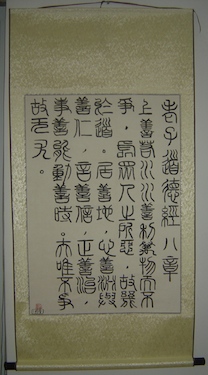 老子道德經八章
上善若水水善利萬物而不
爭，處眾人之所惡，故幾
於道。居善地，心善淵，與
善仁，言善信，正善治，
事善能，動善時。夫唯不爭
故无尤。